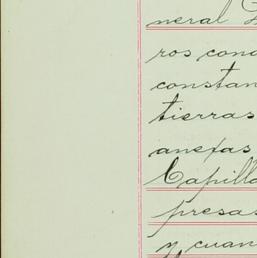 neral
ros cond
constan
tierras
anexas
Capilla
presas
y cuan